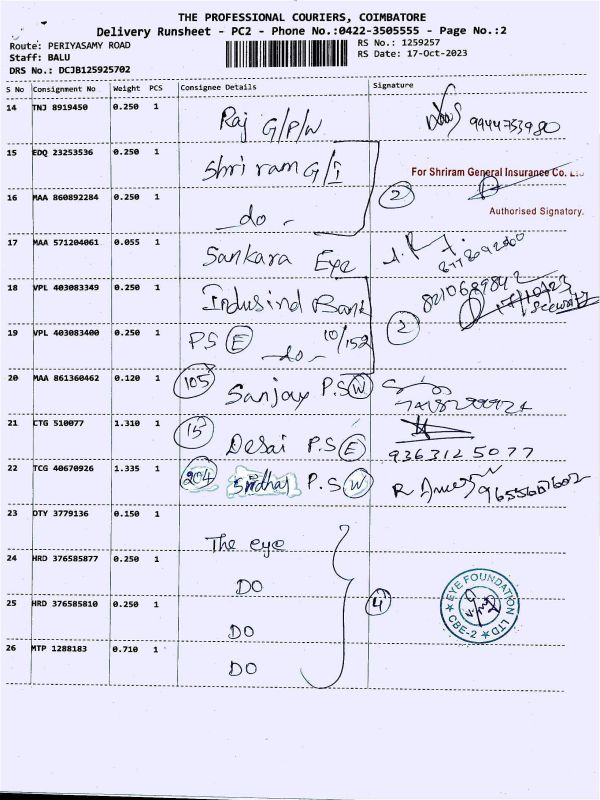 THE PROFESSIONAL COURIERS, COIMBATORE
Delivery Runsheet - PC2 - Phone No.:0422-3505555 - Page No.:2
Route: PERIYASAMY ROAD
RS No.: 1259257
Staff: BALU
RS Date: 17-Oct-2023
DRS No.: DCJB125925702
S No Consignment No Weight PCS Consignee Details Signature
14 TNJ 8919450 0.250 1 Raj G/P/W 9944753980
15 EDQ 23253536 0.250 1 Shriram G/I
For Shriram General Insurance Co. Ltd
16 MAA 860892284 0.250 1 do - 2
Authorised Signatory.
17 MAA 571204061 0.055 1 Sankara Eye
18 VPL 403083349 0.250 1 Indusind Bank 8210689842
Security
19 VPL 403083400 0.250 1 PS E do - 10/152 2
20 MAA 861360462 0.120 1 105 Sanjay P.S W
21 CTG 510077 1.310 1 15 Desai P.S E 9363125077
22 TCG 40670926 1.335 1 204 Sridhar P.S W
23 DTY 3779136 0.150 1 The eye
24 HRD 376585877 0.250 1 DO
25 HRD 376585810 0.250 1 DO 4
EYE FOUNDATION LTD
CBE-2
26 MTP 1288183 0.710 1 DO